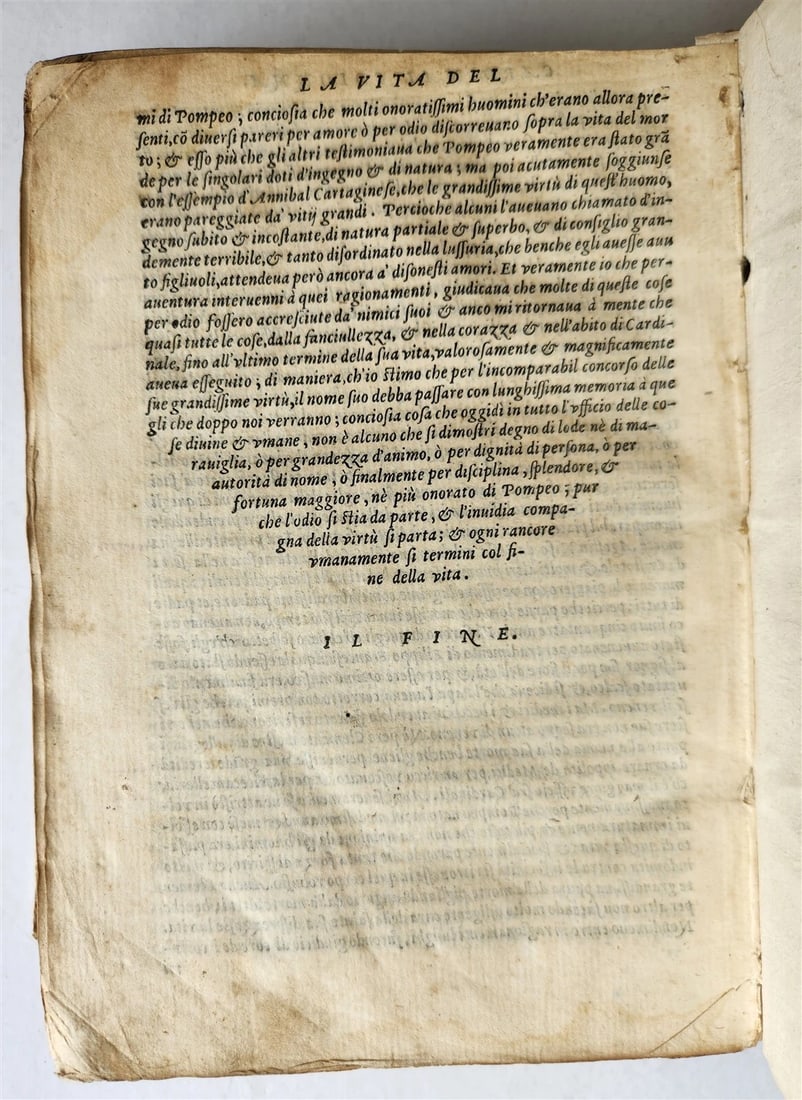 LA VITA DEL
mi di Pompeo; conciosia che molti onoratiſſimi huomini ch'erano allora pre-
ſenti, cõ diuerſi pareri per amore ò per odio diſcorreuano ſopra la vita del mor
to; & eſſo più che gli altri teſtimoniaua che Pompeo veramente era ſtato grã
de per le ſingolari doti d'ingegno & di natura; ma poi acutamente ſoggiunſe
con l'eſſempio d'Annibal Cartagineſe, che le grandiſſime virtù di queſt'huomo,
erano pareggiate da' vitij grandi. Percioche alcuni l'aueuano chiamato d'in-
gegno ſubito & incoſtante, di natura partiale & ſuperbo, & di conſiglio gran-
demente terribile, & tanto diſordinato nella luſſuria, che benche egli aueſſe auu
to figliuoli, attendeua però ancora a' diſoneſti amori. Et veramente io che per-
auentura interuenni à quei ragionamenti, giudicaua che molte di queſte coſe
per odio foſſero accreſciute da' nimici ſuoi & anco mi ritornaua à mente che
quaſi tutte le coſe, dalla fanciullezza, & nella corazza & nell'abito di Cardi-
nale, fino all'vltimo termine della ſua vita, valoroſamente & magnificamente
aueua eſſeguito; di maniera, ch'io ſtimo che per l'incomparabil concorſo delle
ſue grandiſſime virtù, il nome ſuo debba paſſare con lunghiſſima memoria à que
gli che doppo noi verranno; conciosia coſa che oggidì in tutto l'vfficio delle co-
ſe diuine & vmane, non è alcuno che ſi dimoſtri degno di lode nè di ma-
rauiglia, ò per grandezza d'animo, ò per dignità di perſona, ò per
autorità di nome, ò finalmente per diſciplina, ſplendore, &
fortuna maggiore, nè più onorato di Pompeo; pur
che l'odio ſi ſtia da parte, & l'inuidia compa-
gna della virtù ſi parta; & ogni rancore
vmanamente ſi termini col fi-
ne della vita.
IL FINE.